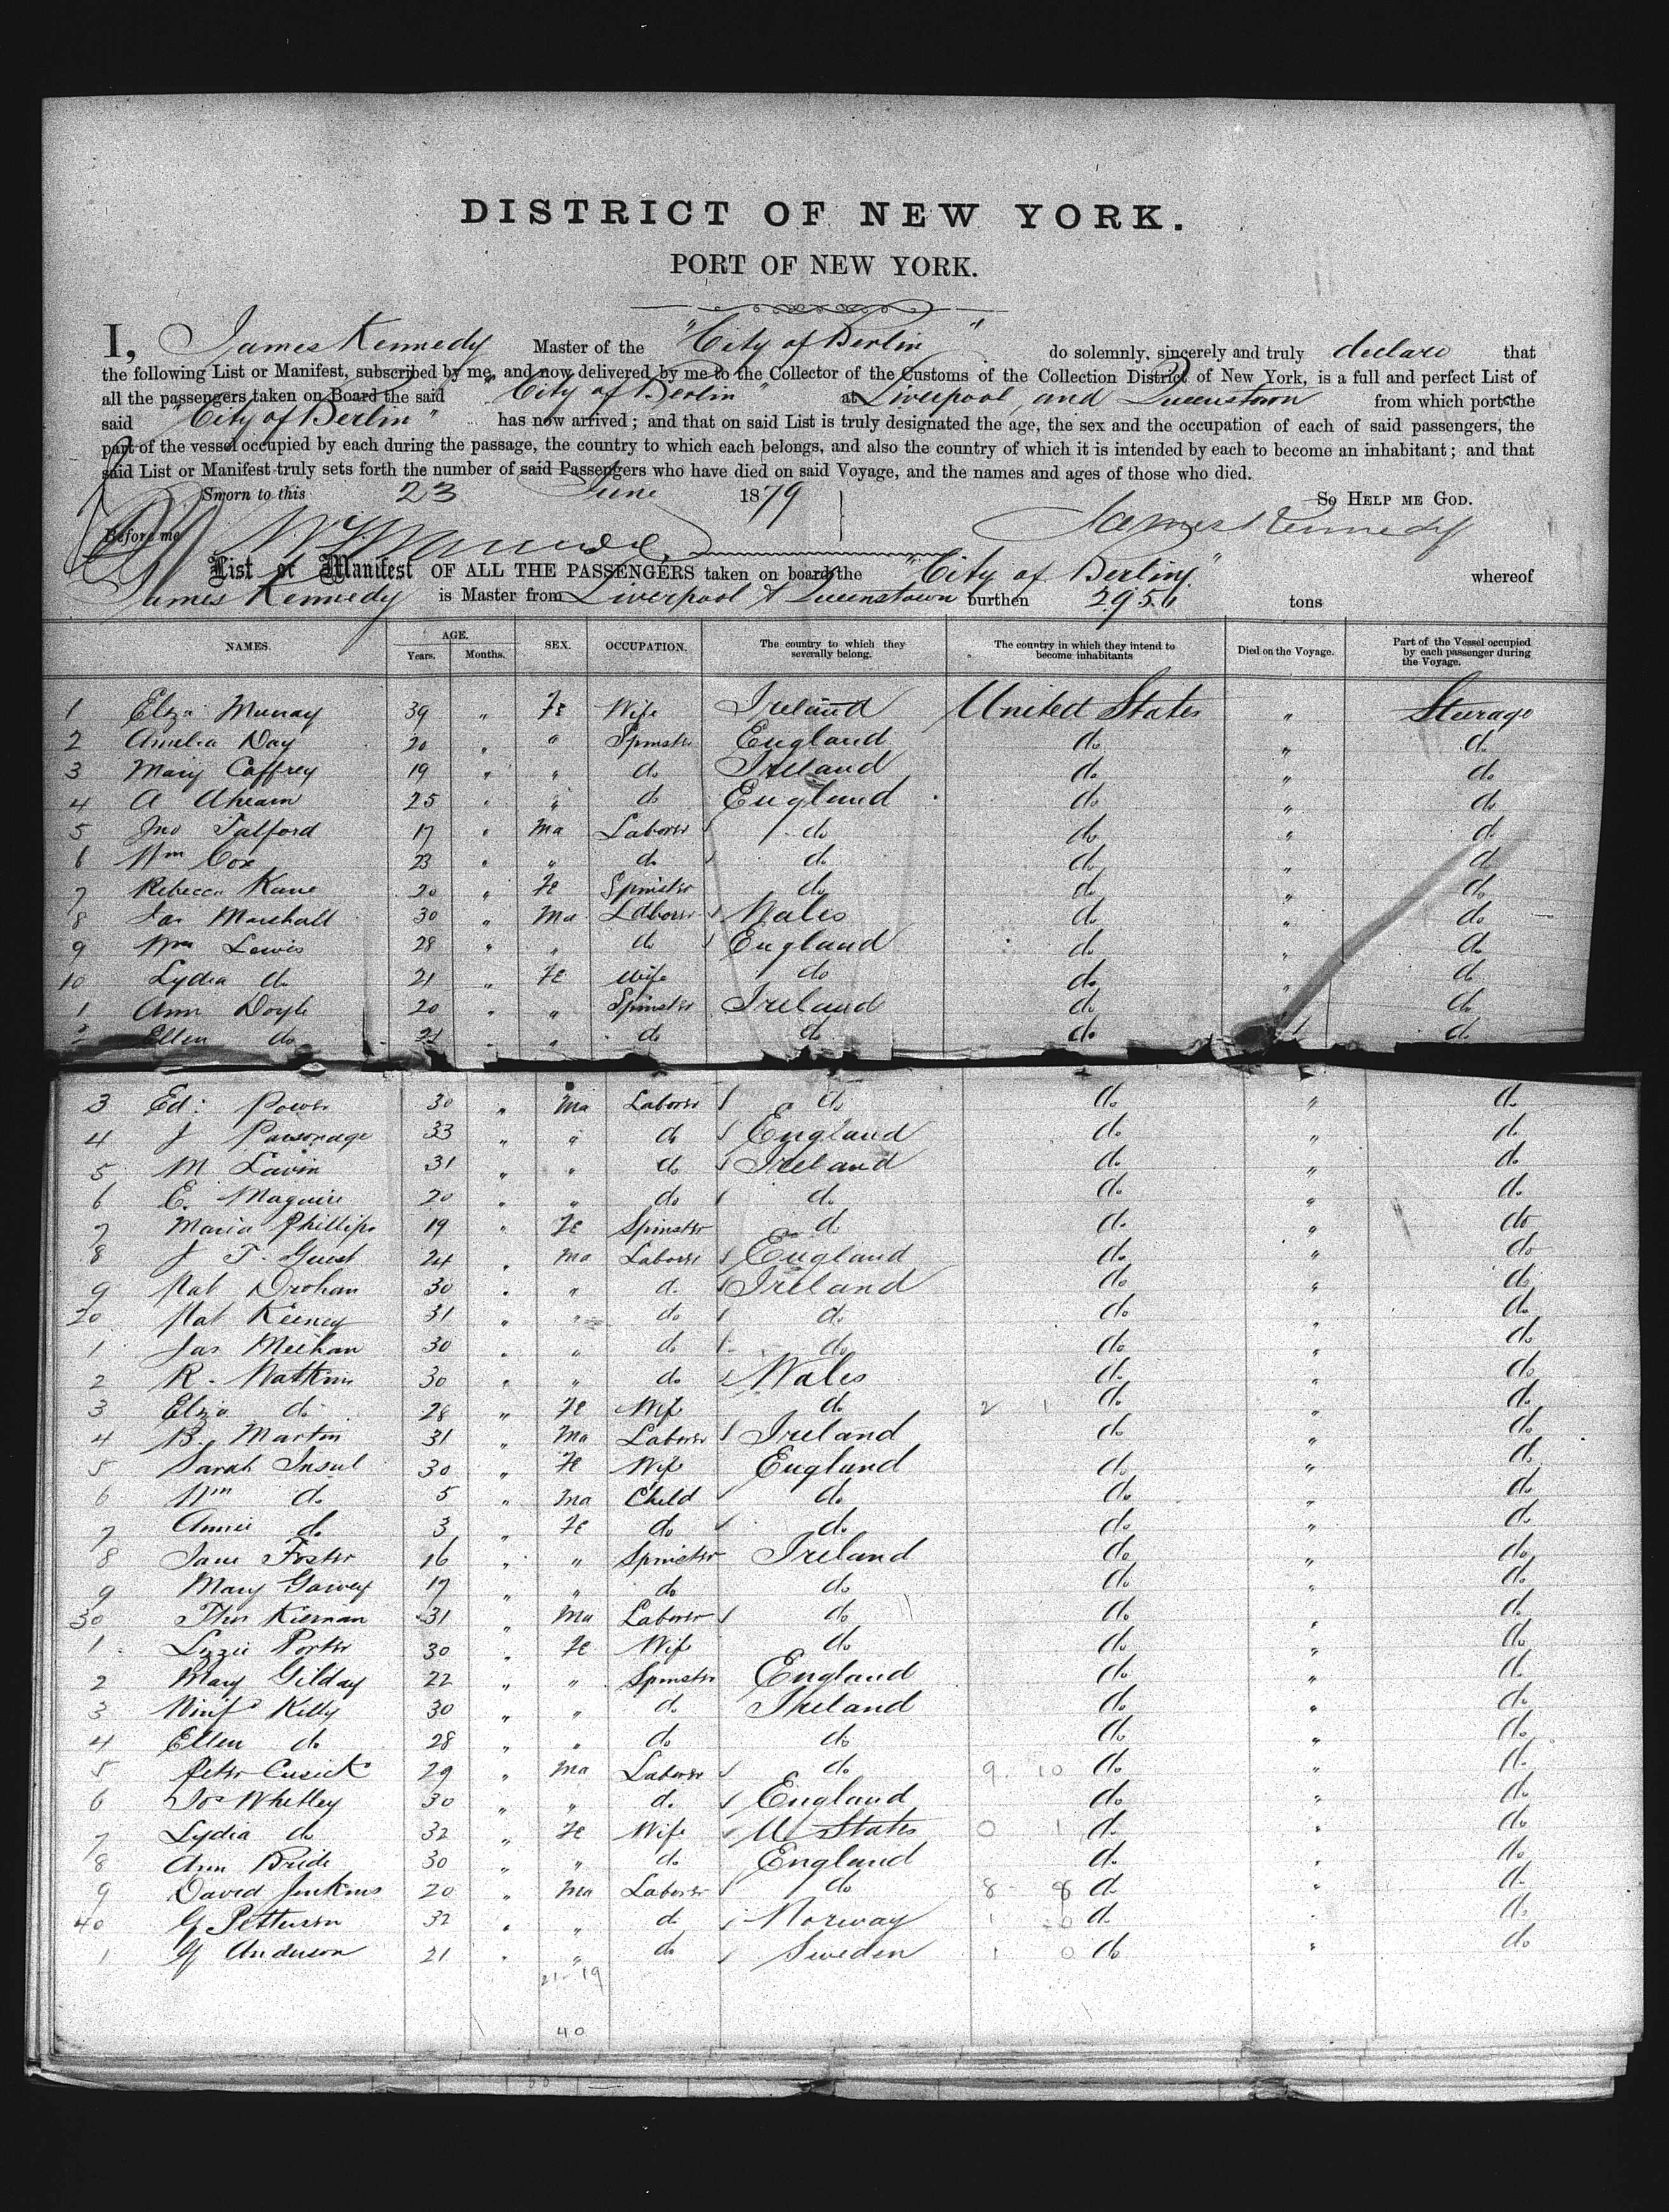 DISTRICT OF NEW YORK.
PORT OF NEW YORK.
I, James Kennedy Master of the "City of Berlin" do solemnly, sincerely and truly declare that
the following List or Manifest, subscribed by me, and now delivered by me to the Collector of the Customs of the Collection District of New York, is a full and perfect List of
all the passengers taken on Board the said "City of Berlin" at Liverpool, and Queenstown from which port the
said "City of Berlin" has now arrived; and that on said List is truly designated the age, the sex and the occupation of each of said passengers, the
part of the vessel occupied by each during the passage, the country to which each belongs, and also the country of which it is intended by each to become an inhabitant; and that
said List or Manifest truly sets forth the number of said Passengers who have died on said Voyage, and the names and ages of those who died.
Sworn to this 23 June 1879 So HELP ME GOD.
Before me James Kennedy
List or Manifest OF ALL THE PASSENGERS taken on board the "City of Berlin" whereof
James Kennedy is Master from Liverpool & Queenstown burthen 2956 tons
NAMES. AGE. Years. Months. SEX. OCCUPATION. The country to which they severally belong. The country in which they intend to become inhabitants Died on the Voyage. Part of the Vessel occupied by each passenger during the Voyage.
1 Eliza Murray 39 " Fe Wife Ireland United States " Steerage
2 Amelia Day 20 " " Spinster England do " do
3 Mary Caffrey 19 " " do Ireland do " do
4 A Ahearn 25 " " do England do " do
5 Jno Talford 17 " Ma Laborer do do " do
6 Wm Cox 23 " " do do do " do
7 Rebecca Kane 20 " Fe Spinster do do " do
8 Jas Marshall 30 " Ma Laborer Wales do " do
9 Wm Lewis 28 " " do England do " do
10 Lydia do 21 " Fe Wife do do " do
1 Ann Doyle 20 " " Spinster Ireland do " do
2 Ellen do 21 " " do do do " do
3 Ed: Power 30 " Ma Laborer do do " do
4 J Parsonage 33 " " do England do " do
5 M Lavin 31 " " do Ireland do " do
6 E. Maguire 20 " " do do do " do
7 Maria Phillips 19 " Fe Spinster do do " do
8 J T. Guest 24 " Ma Laborer England do " do
9 Pat Drohan 30 " " do Ireland do " do
20 Pat Keeney 31 " " do do do " do
1 Jas Meehan 30 " " do do do " do
2 R. Watkins 30 " " do Wales do " do
3 Eliza do 28 " Fe Wife do 2 1 do " do
4 B. Martin 31 " Ma Laborer Ireland do " do
5 Sarah Insul 30 " Fe Wife England do " do
6 Wm do 5 " Ma Child do do " do
7 Annie do 3 " Fe do do do " do
8 Jane Foster 16 " " Spinster Ireland do " do
9 Mary Garvey 17 " " do do do " do
30 Thos Kiernan 31 " Ma Laborer do do " do
1 Lizzie Porter 30 " Fe Wife do do " do
2 Mary Gilday 22 " " Spinster England do " do
3 Winif Kelly 30 " " do Ireland do " do
4 Ellen do 28 " " do do do " do
5 Peter Cusick 29 " Ma Laborer do 9 10 do " do
6 Jos Whetley 30 " " do England do " do
7 Lydia do 32 " Fe Wife U States 0 1 do " do
8 Ann Bride 30 " " do England do " do
9 David Jenkins 20 " Ma Laborer do 8 8 do " do
40 G Petterson 32 " " do Norway 1 0 do " do
1 G Anderson 21 " " do Sweden 1 0 do " do
21-19
40